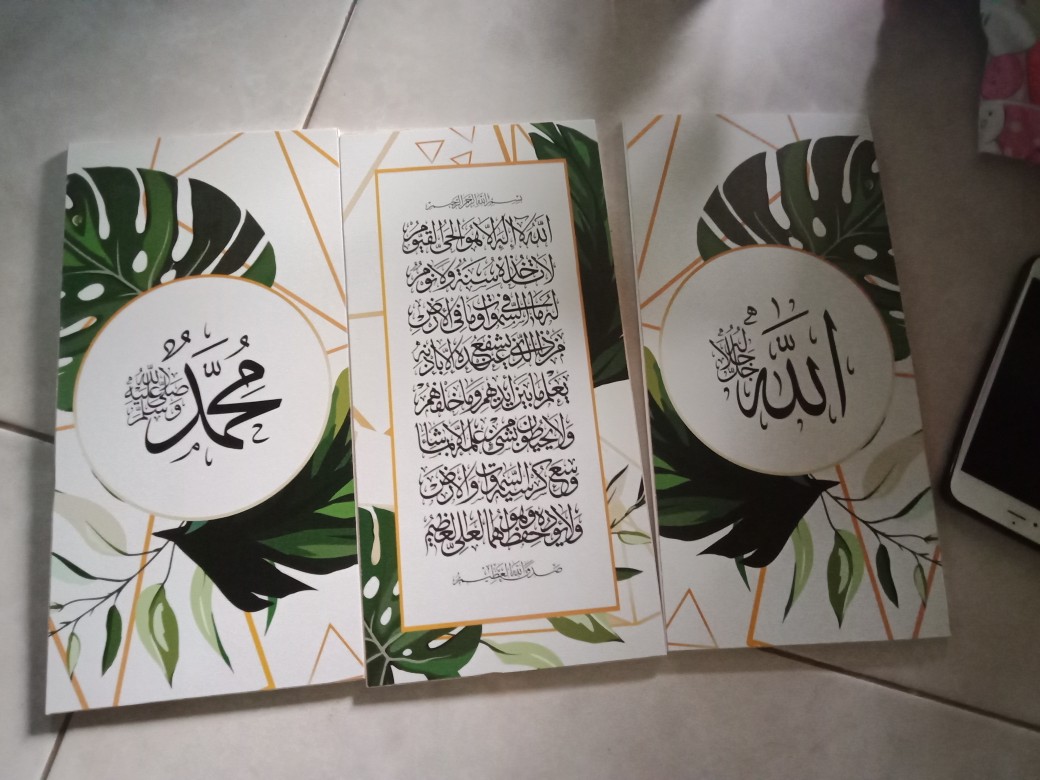 الله
جل جلاله
بسم الله الرحمن الرحيم
الله لا إله إلا هو الحي القيوم
لا تأخذه سنة ولا نوم
له ما في السموات وما في الأرض
من ذا الذي يشفع عنده إلا بإذنه
يعلم ما بين أيديهم وما خلفهم
ولا يحيطون بشيء من علمه إلا بما شاء
وسع كرسيه السموات والأرض
ولا يؤده حفظهما وهو العلي العظيم
صدق الله العظيم
محمد
صلى الله عليه وسلم